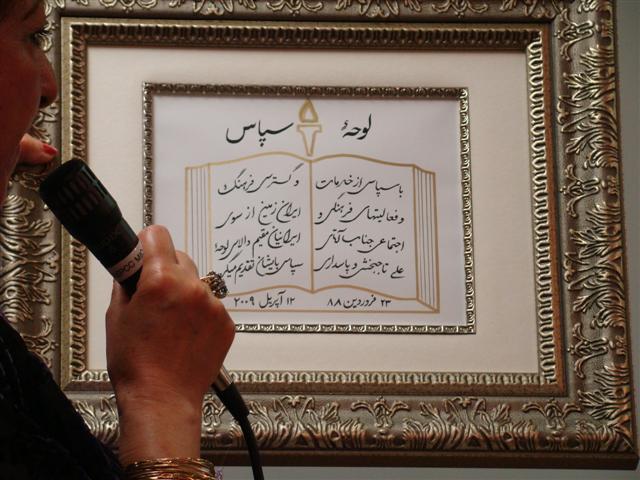 لوحهٔ سپاس
با سپاس از خدمات
و فعالیتهای فرهنگی و
اجتماعی جناب آقای
علی تاجبخش و پاسداری
و گسترش فرهنگ
ایران زمین از سوی
ایرانیان مقیم دالاس لوحهٔ
سپاس بایشان تقدیم میگ
۲۳ فروردین ۸۸
۱۲ آپریل ۲۰۰۹